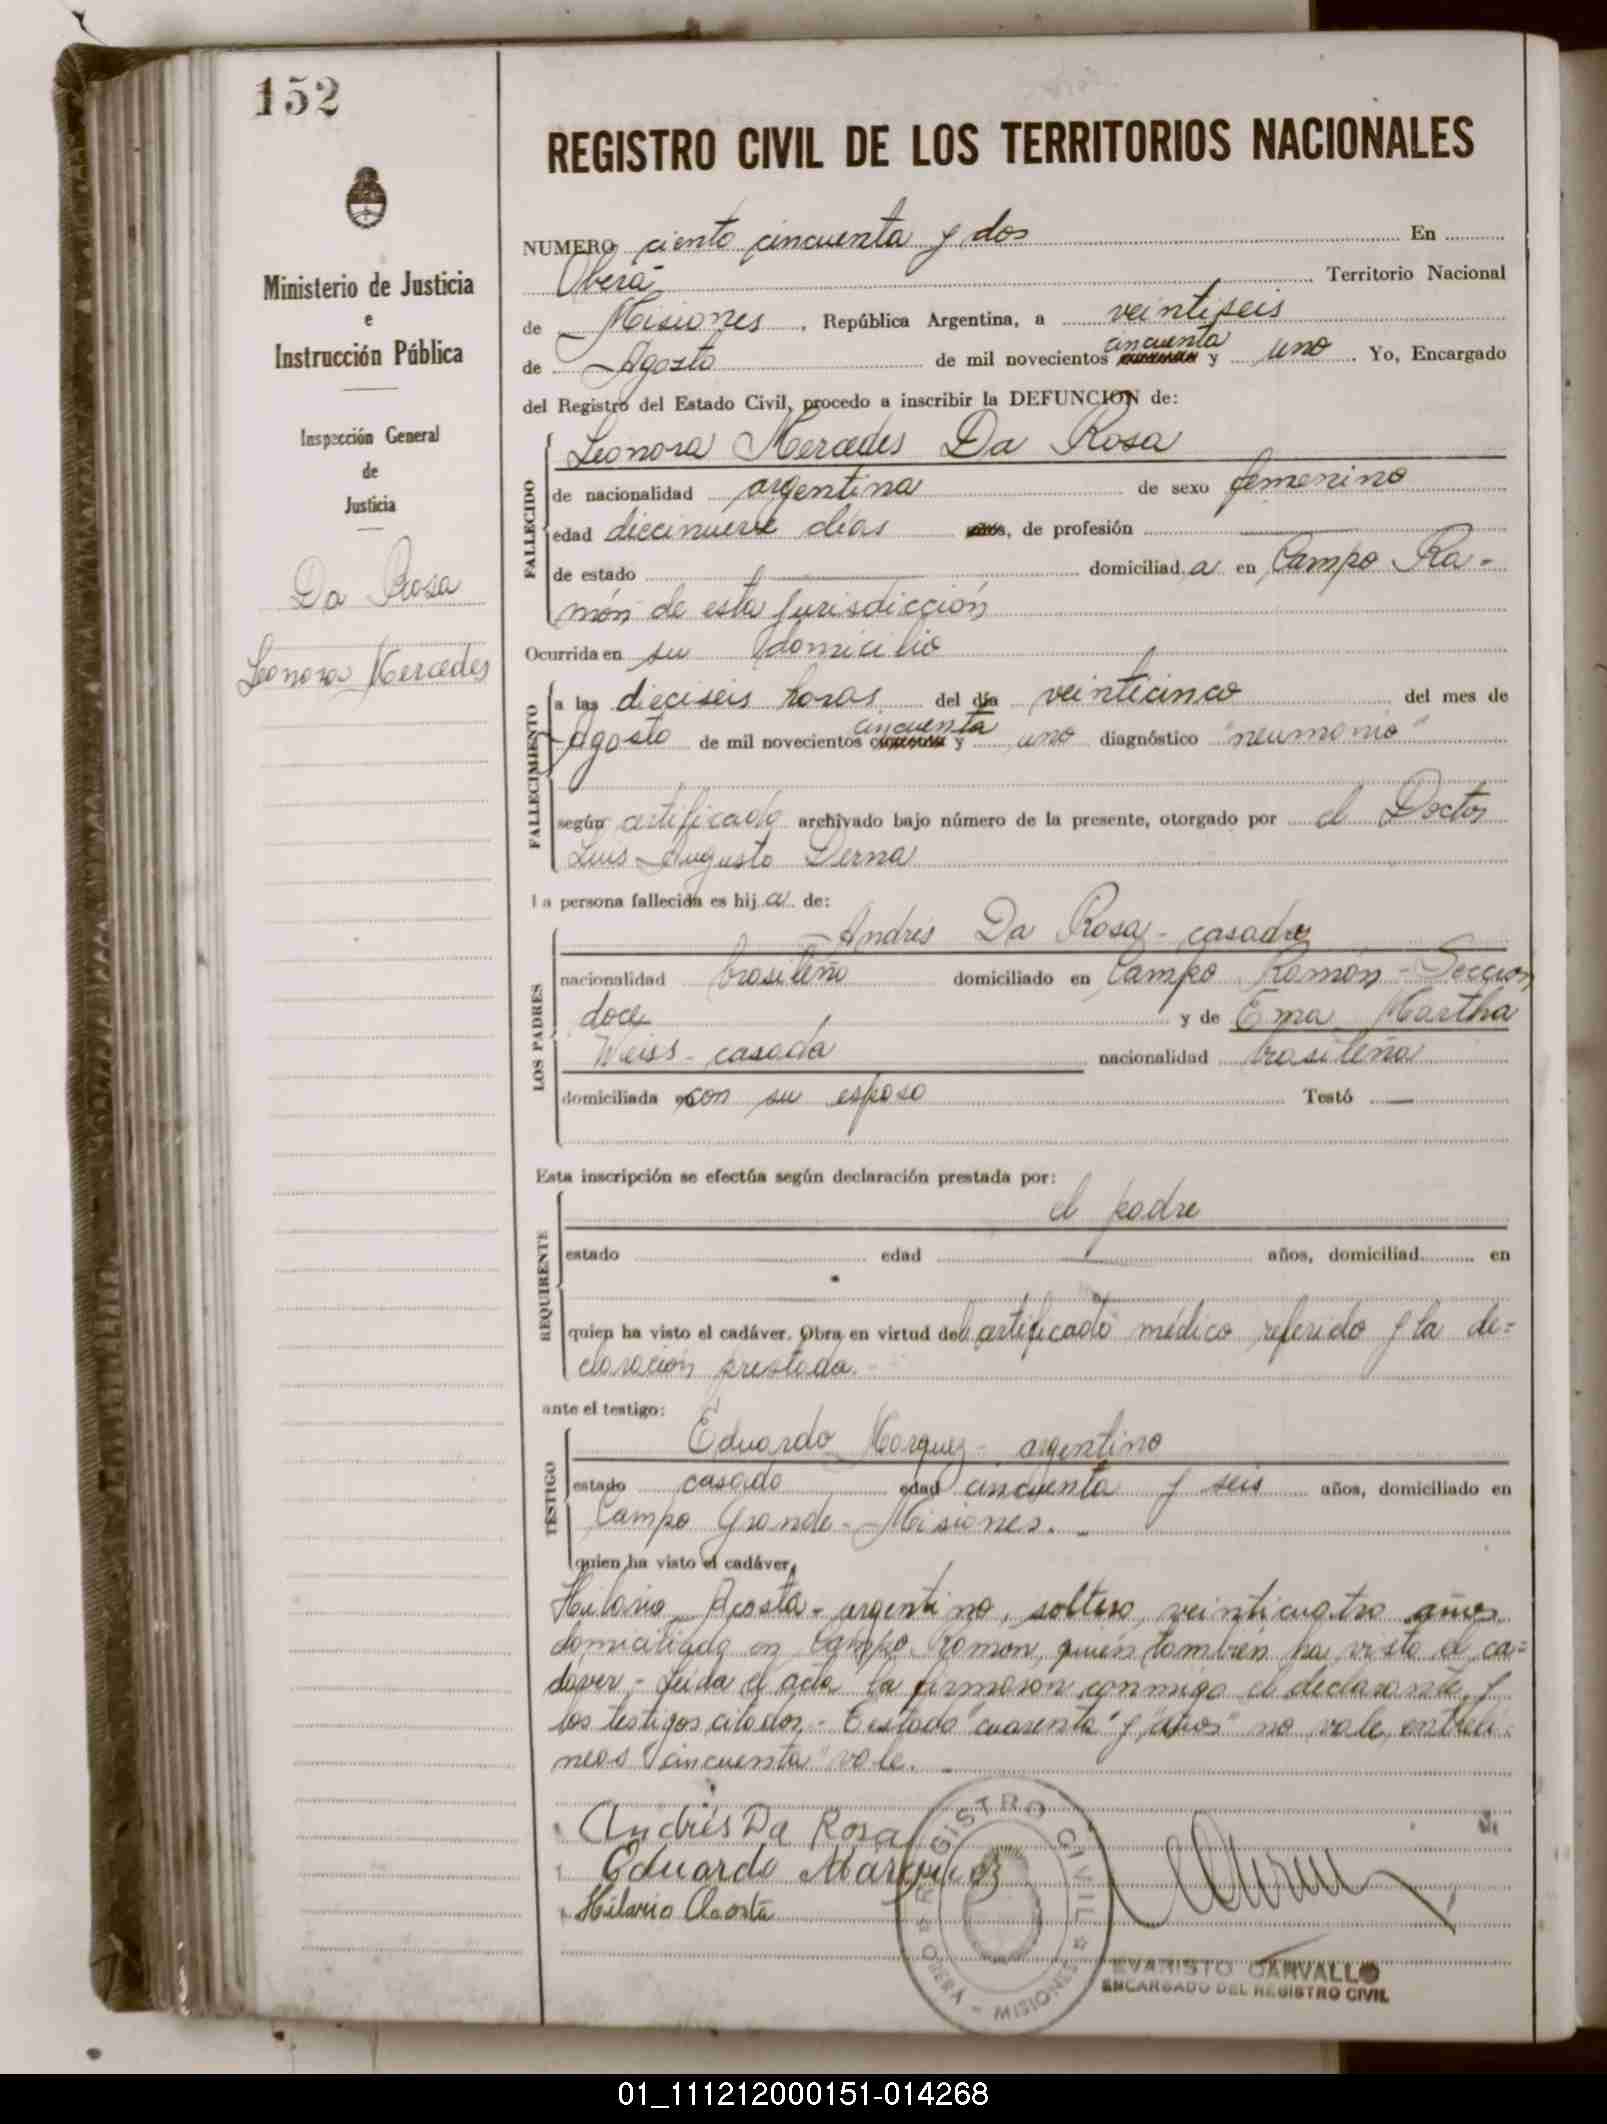 152
Ministerio de Justicia
e
Instrucción Pública
Inspección General
de
Justicia
Da Rosa
Leonora Mercedes
REGISTRO CIVIL DE LOS TERRITORIOS NACIONALES
NUMERO ciento cincuenta y dos En
Oberá Territorio Nacional
de Misiones, República Argentina, a veintiseis
cincuenta
de Agosto de mil novecientos y uno Yo, Encargado
del Registro del Estado Civil, procedo a inscribir la DEFUNCION de:
FALLECIDO
Leonora Mercedes Da Rosa
de nacionalidad argentina de sexo femenino
edad diecinueve días años, de profesión
de estado domiciliad a en Campo Ra-
món de esta jurisdicción
Ocurrida en su domicilio
FALLECIMIENTO
a las dieciseis horas del día veinticinco del mes de
cincuenta
Agosto de mil novecientos cuarenta y uno diagnóstico "neumonio"
según certificado archivado bajo número de la presente, otorgado por el Doctor
Luis Augusto Derna
La persona fallecida es hij a de:
LOS PADRES
Andrés Da Rosa - casado
nacionalidad brasileño domiciliado en Campo Ramón - Seccion
doce y de Ema Martha
Weiss - casada nacionalidad brasileña
domiciliada en con su esposo Testó —
Esta inscripción se efectúa según declaración prestada por:
REQUIRENTE
el padre
estado edad años, domiciliad en
quien ha visto el cadáver. Obra en virtud del certificado médico referido y la de=
claración prestada.
ante el testigo:
TESTIGO
Eduardo Marquez - argentino
estado casado edad cincuenta y seis años, domiciliado en
Campo Grande - Misiones. -
quien ha visto el cadáver,
Hilario Acosta - argentino, soltero, veinticuatro años
domiciliado en Campo Ramon, quien tambien ha visto el ca=
daver - Leida el acta la firmaron conmigo el declarante y
los testigos citados. - Testado "cuarenta" y "años" no vale, entreli-
neas "cincuenta" vale.
Andrés Da Rosa
Eduardo Márquez
Hilario Acosta
REGISTRO CIVIL
OBERÁ - MISIONES
EVARISTO CARVALLO
ENCARGADO DEL REGISTRO CIVIL
01_111212000151-014268